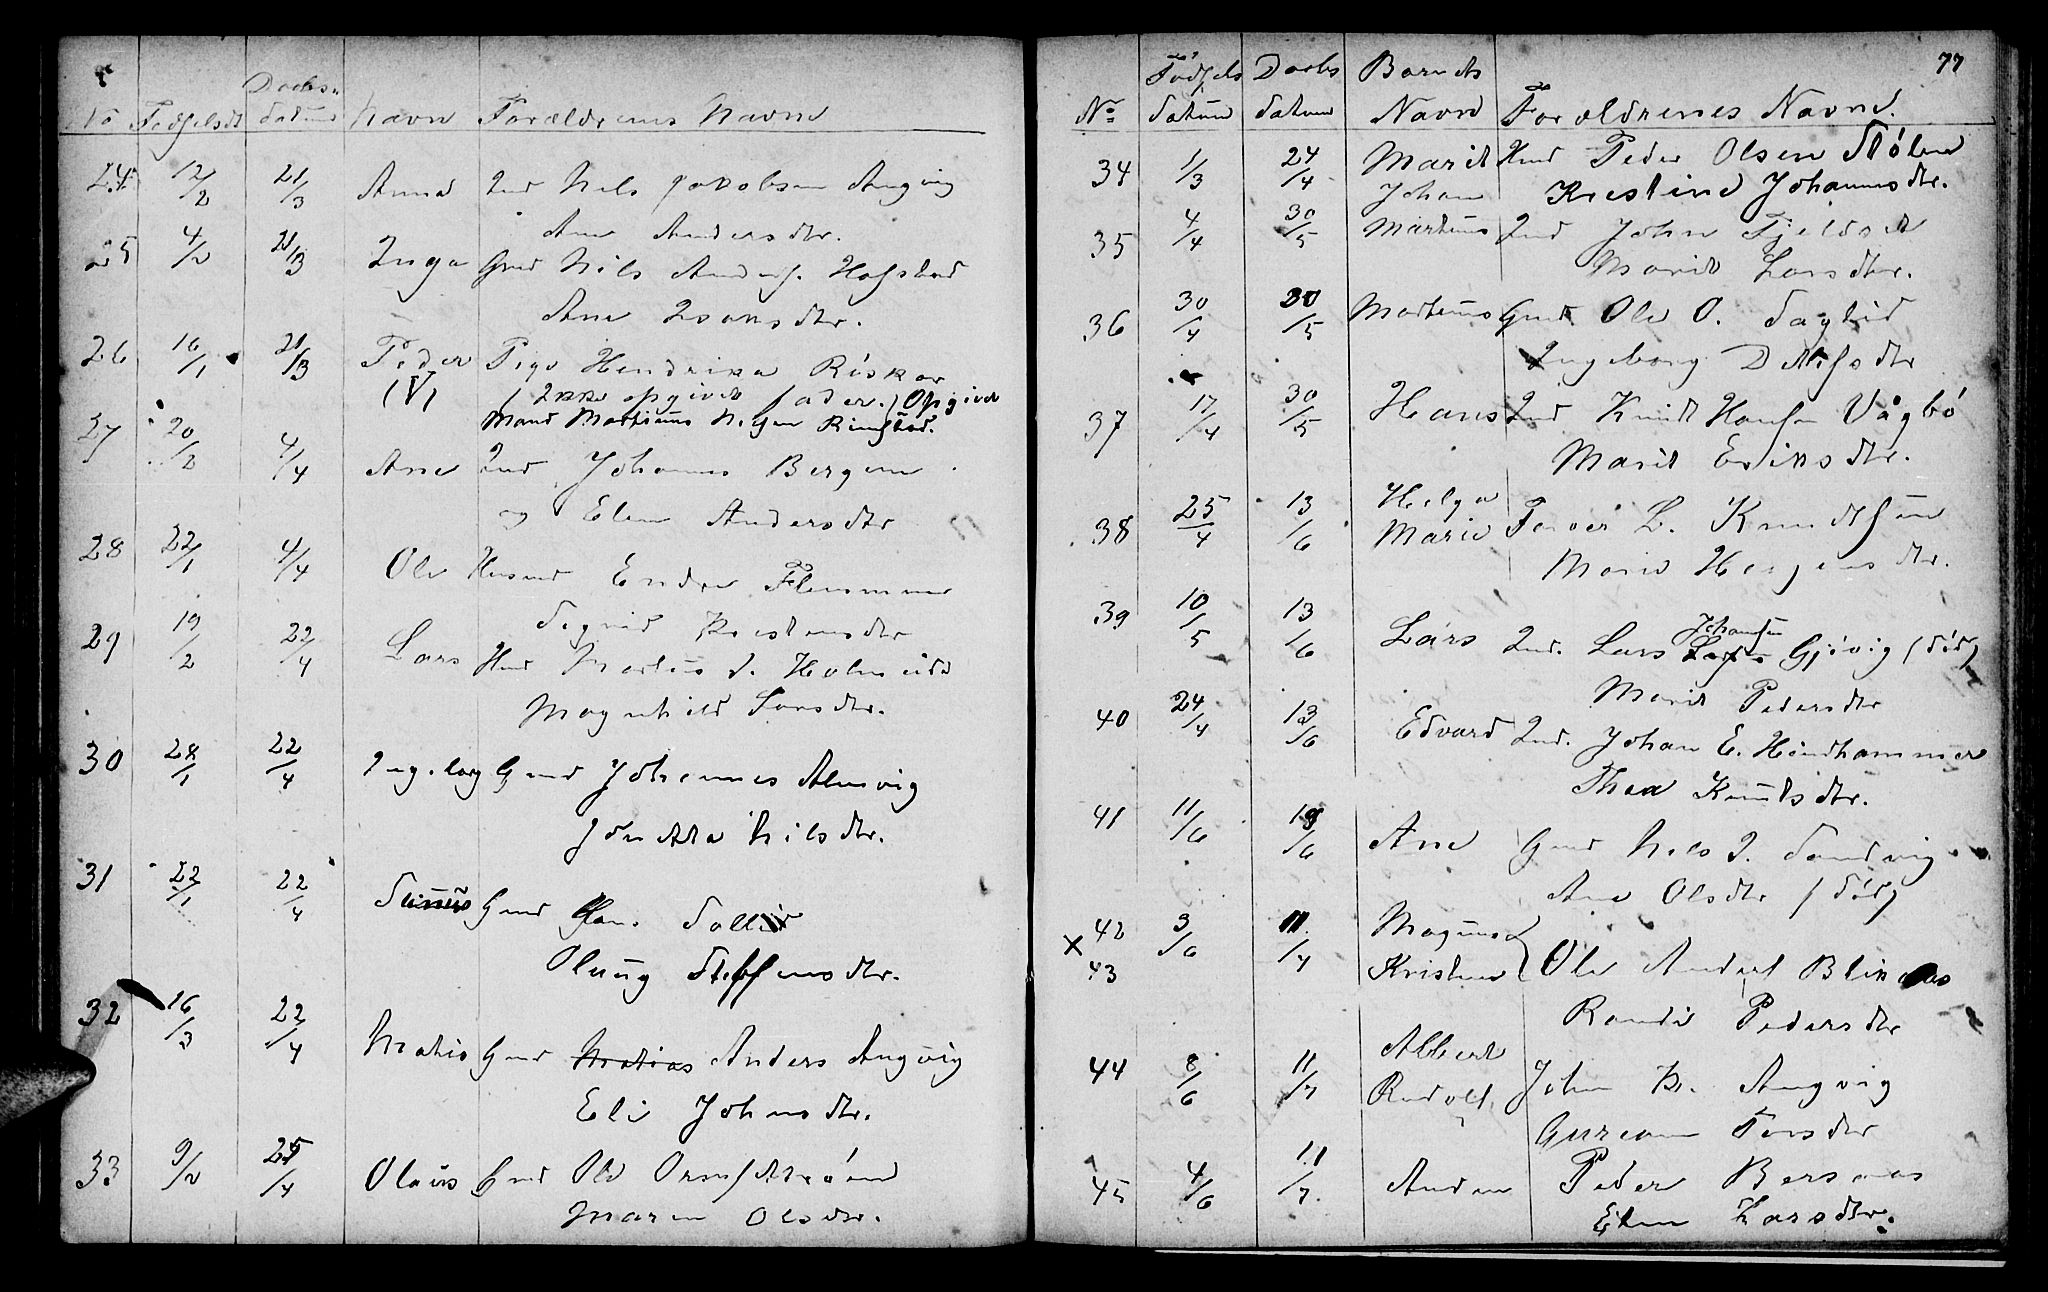 No Fødselsdt Daabsdatum Navn Forældrenes Navne
24 12/2 21/3 Anne Ind Nils Jakobsen Angvig
Ane Andersdtr.
25 4/2 21/3 Inga Gmd Nils Anders. Hofstad
Ane Isaksdtr.
26 16/1 21/3 Peder Pige Hendrika Riskar
(V) (Ikke opgivet fader.) Opgiver
Mand Martinus N.
27 20/2 4/4 Ane Ind Johannes Bergem
og Elen Andersdtr
28 22/1 4/4 Ole Husmd Endre Flemmen
Sigrid Kristensdtr
29 19/2 22/4 Lars Hmd Martus J. Holmeide
Magnhild Larsdtr.
30 28/1 22/4 Ingeborg Gmd Johannes Almvig
Jonetta Nilsdtr.
31 22/1 22/4 Gmd Hans Sollid
Oluug Steffensdtr.
32 16/3 22/4 Matis Gmd Matias Anders Angvig
Eli Johnsdtr.
33 9/2 25/4 Olaus Gmd Ole
Maren Olsdtr.
77
Fødsels Daabs Barnets
No datum datum Navn Forældrenes Navne.
34 1/3 24/4 Marit Hmd Peder Olsen Stølen
Kristine Johannesdtr.
Johan
35 4/4 30/5 Martinus Ind John Fjeldset
Marit Larsdtr.
36 30/4 30/5 Martinus Gmd Ole O. Sagbid
Ingeborg Ditlefsdtr
37 17/4 30/5 Hans Ind Knudt Hansen Vågbø
Marit Eriksdtr.
Helga
38 25/4 13/6 Marie L. Knudtsøn
Marie
39 10/5 13/6 Lars Ind. Lars Johansen Gjøvig (død)
Marit Pedersdtr
40 24/4 13/6 Edvard Ind. Johan E. Hindhammer
Thea Knutsdtr.
41 11/6 19/6 Ane Gmd Nils J. Sandvig
Ane Olsdtr (død)
x 42 3/6 11/7 Magnus
43 Kristen Ole Anders Bliknæs
Randi Pedersdtr
Albert
44 8/6 11/7 Rudolf John K. Angvig
Gurianna
45 4/6 11/7 Anders Peder Bersaas
Elen Larsdtr.